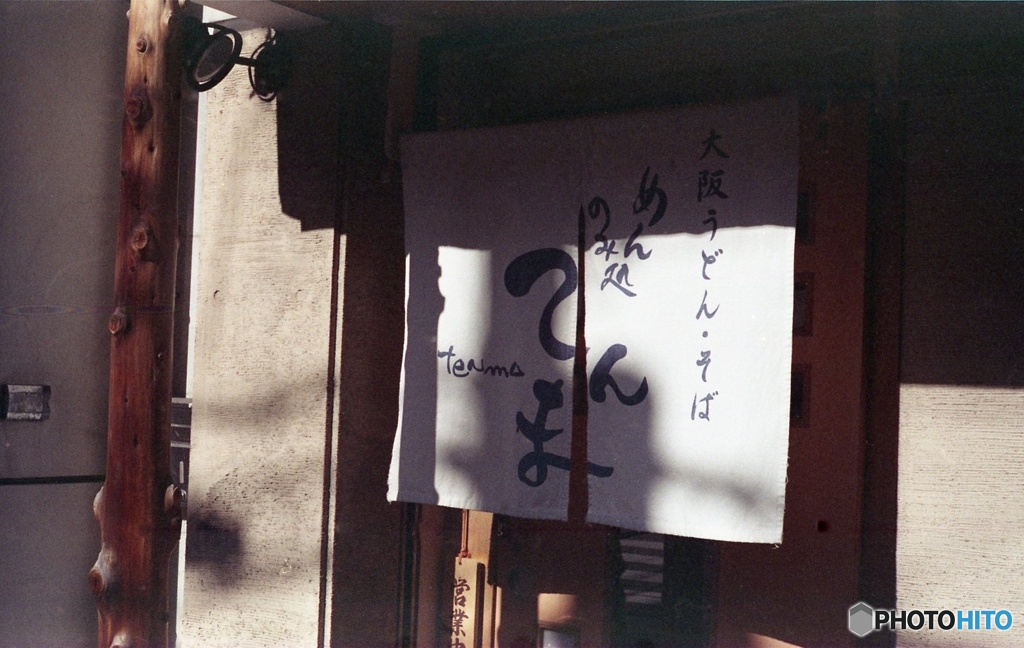 大阪うどん・そば
めん
のみ処
てんま
tenma
営業中
PHOTOHITO